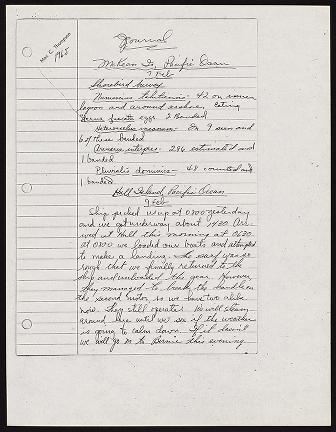 Max C. Thompson
1965
Journal
McKean Is, Pacific Ocean
7 Feb
Shorebird Survey
Numenius tahitiensis - 42 on
lagoon and around seashore, Eating
Sterna fuscata eggs. 2 Banded
Heteroscelus incanum - 9 seen and
6 of these banded
Arenaria interpres - 296 estimated and
1 banded
Pluvialis dominica - 48 counted and
1 banded
Hull Island, Pacific Ocean
9 Feb
Ship picked us up at 0700 yesterday
and we got underway about 0900. Arr-
ived at Hull this morning at 0630.
at 0800 we loaded our boats and attempted
to make a landing. The surf was so
rough that we finally returned to the
ship and unloaded the gear. However
they managed to break the handle on
the second motor so we have two alike
now. They still operate. We will steam
around here until we see if the weather
is going to calm down. If it doesn't
we will go on to Birnie this evening